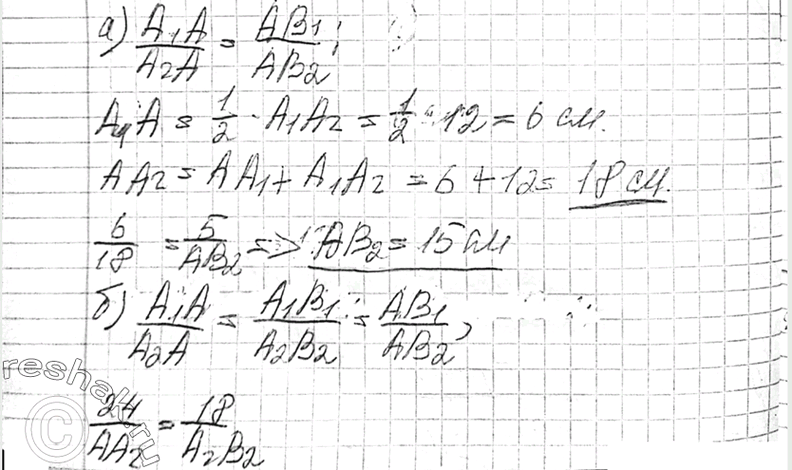 а) A₁A/A₂A = AB₁/AB₂;
A₁A = 1/2 · A₁A₂ = 1/2 · 12 = 6 см.
AA₂ = AA₁ + A₁A₂ = 6 + 12 = 18 см.
6/18 = 5/AB₂ => AB₂ = 15 см
б) A₁A/A₂A = A₁B₁/A₂B₂ = AB₁/AB₂,
24/AA₂ = 18/A₂B₂
reshak.ru
©